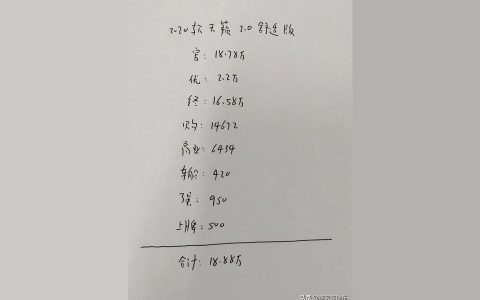 2.20款天籁 2.0 舒适版
官: 18.78万
优: 2.2万
终: 16.58万
购: 14672
商业: 6434
车船: 420
强: 950
上牌: 500
合计: 18.88万